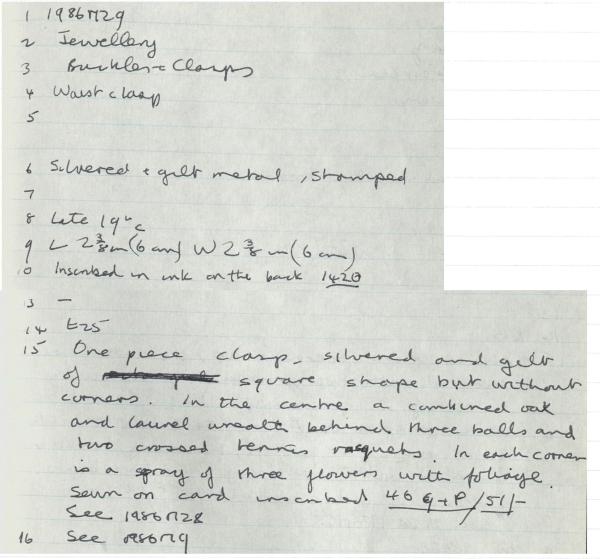 1 1986M29
2 Jewellery
3 Buckles + Clasps
4 Waist clasp
5
6 Silvered + gilt metal, stamped
7
8 Late 19th c
9 L 2 3/8 in (6 cm) W 2 3/8 in (6 cm)
10 Inscribed in ink on the back 1420
13 —
14 £25
15 One piece clasp - silvered and gilt
of square shape but without
corners. In the centre a combined oak
and laurel wreath behind three balls and
two crossed tennis racquets. In each corner
is a spray of three flowers with foliage.
Sewn on card inscribed 46 G+P/51/-
See 1986M28
16 See 1986M9